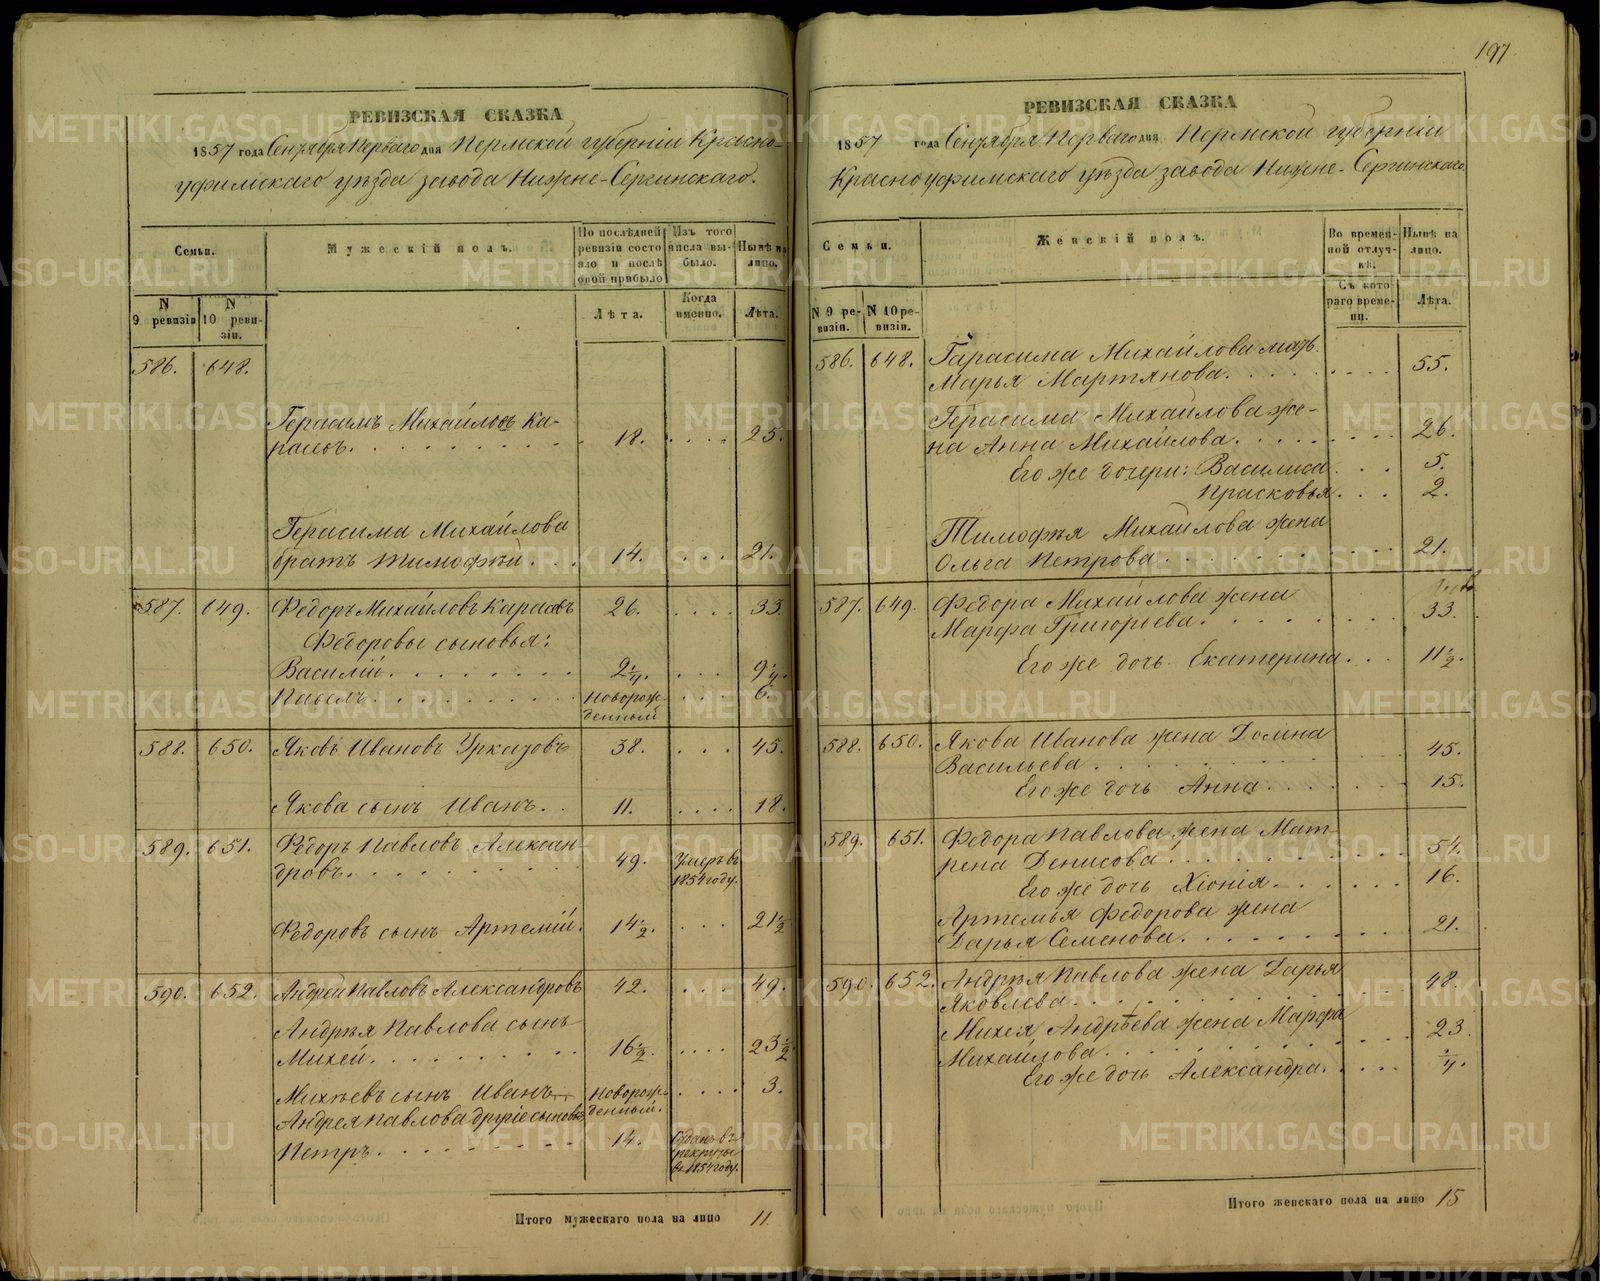 РЕВИЗСКАЯ СКАЗКА
1857 года Сентября Перваго дня Пермской губерніи Красно-
уфимскаго уѣзда завода Нижне-Сергинскаго.
Семьи.
Мужескій полъ.
По послѣдней ревизіи состояло и послѣ оной прибыло
Изъ того числа выбыло.
Нынѣ на лицо.
N 9 ревизіи
N 10 ревизіи.
Лѣта.
Когда именно.
Лѣта.
586. 648.
Герасимъ Михайловъ Ка-
расевъ. 18. 25.
Герасима Михайлова
братъ Тимофѣй 14. 21.
587. 649. Федоръ Михайловъ Карасевъ 26. 33.
Федоровы сыновья:
Василій 2 1/4. 9 1/4.
Павелъ Новорож- 6.
денный
588. 650. Яковъ Ивановъ Урказовъ 38. 45.
Якова сынъ Иванъ 11. 18.
589. 651. Федоръ Павловъ Алексан-
дровъ. 49. Умеръ въ
1854 году.
Федоровъ сынъ Артемій. 14 1/2. 21 1/2
590. 652. Андрей Павловъ Александровъ 42. 49.
Андрѣя Павлова сынъ
Михей. 16 1/2. 23 1/2
Михѣевъ сынъ Иванъ Новорож- 3.
Андрея Павлова другіе сыновья денный.
Петръ. 14. Отданъ въ
рекруты
въ 1854 году.
Итого мужескаго пола на лицо 11.
197
РЕВИЗСКАЯ СКАЗКА
1857 года Сентября Перваго дня Пермской губерніи
Красноуфимскаго уѣзда завода Нижне-Сергинскаго.
Семьи.
Женскій полъ.
Во временной отлучкѣ.
Нынѣ на лицо.
N 9 ревизіи.
N 10 ревизіи.
Съ котораго времени.
Лѣта.
586. 648. Гарасима Михайлова мать
Марья Мартянова. 55.
Герасима Михайлова же-
на Анна Михайлова. 26.
Его же дочери: Василиса 5.
Прасковья 2.
Тимофѣя Михайлова жена
Ольга Петрова. 21.
587. 649. Федора Михайлова жена
Марфа Григорьева. 33.
Его же дочь Екатерина 11 1/2.
588. 650. Якова Иванова жена Домна
Васильева 45.
Его же дочь Анна 15.
589. 651. Федора Павлова жена Мат-
рена Денисова 54.
Его же дочь Хіонія 16.
Артемья Федорова жена
Дарья Семенова. 21.
590. 652. Андрѣя Павлова жена Дарья
Яковлева 48.
Михея Андрѣева жена Марфа
Михайлова 23.
Его же дочь Александра. 1/4.
Итого женскаго пола на лицо 15
METRIKI.GASO-URAL.RU